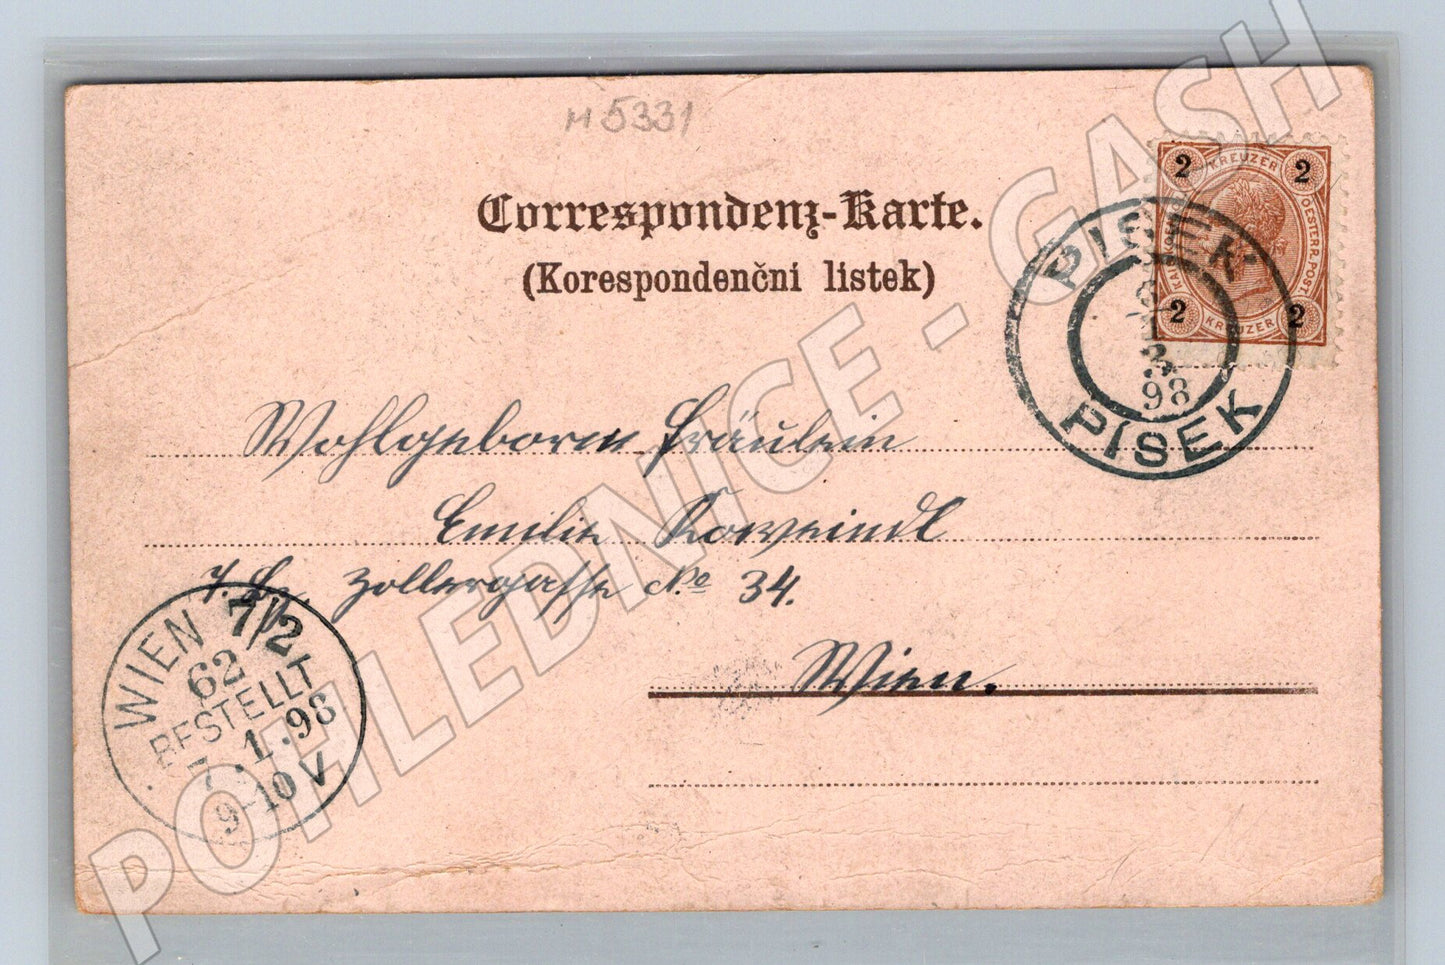 M 5331
Correspondenz-Karte.
(Korespondenční lístek)
2 KREUZER 2
KAIS. KOEN. OESTERR. POST
2 KREUZER 2
PISEK
3
98
PÍSEK
Wohlgeborne Fräulein
Emilie
7. Bz. Zollergasse No 34.
Wien.
WIEN 7/2
62
BESTELLT
7.1.98
9-10V
POHLEDNICE - GASH